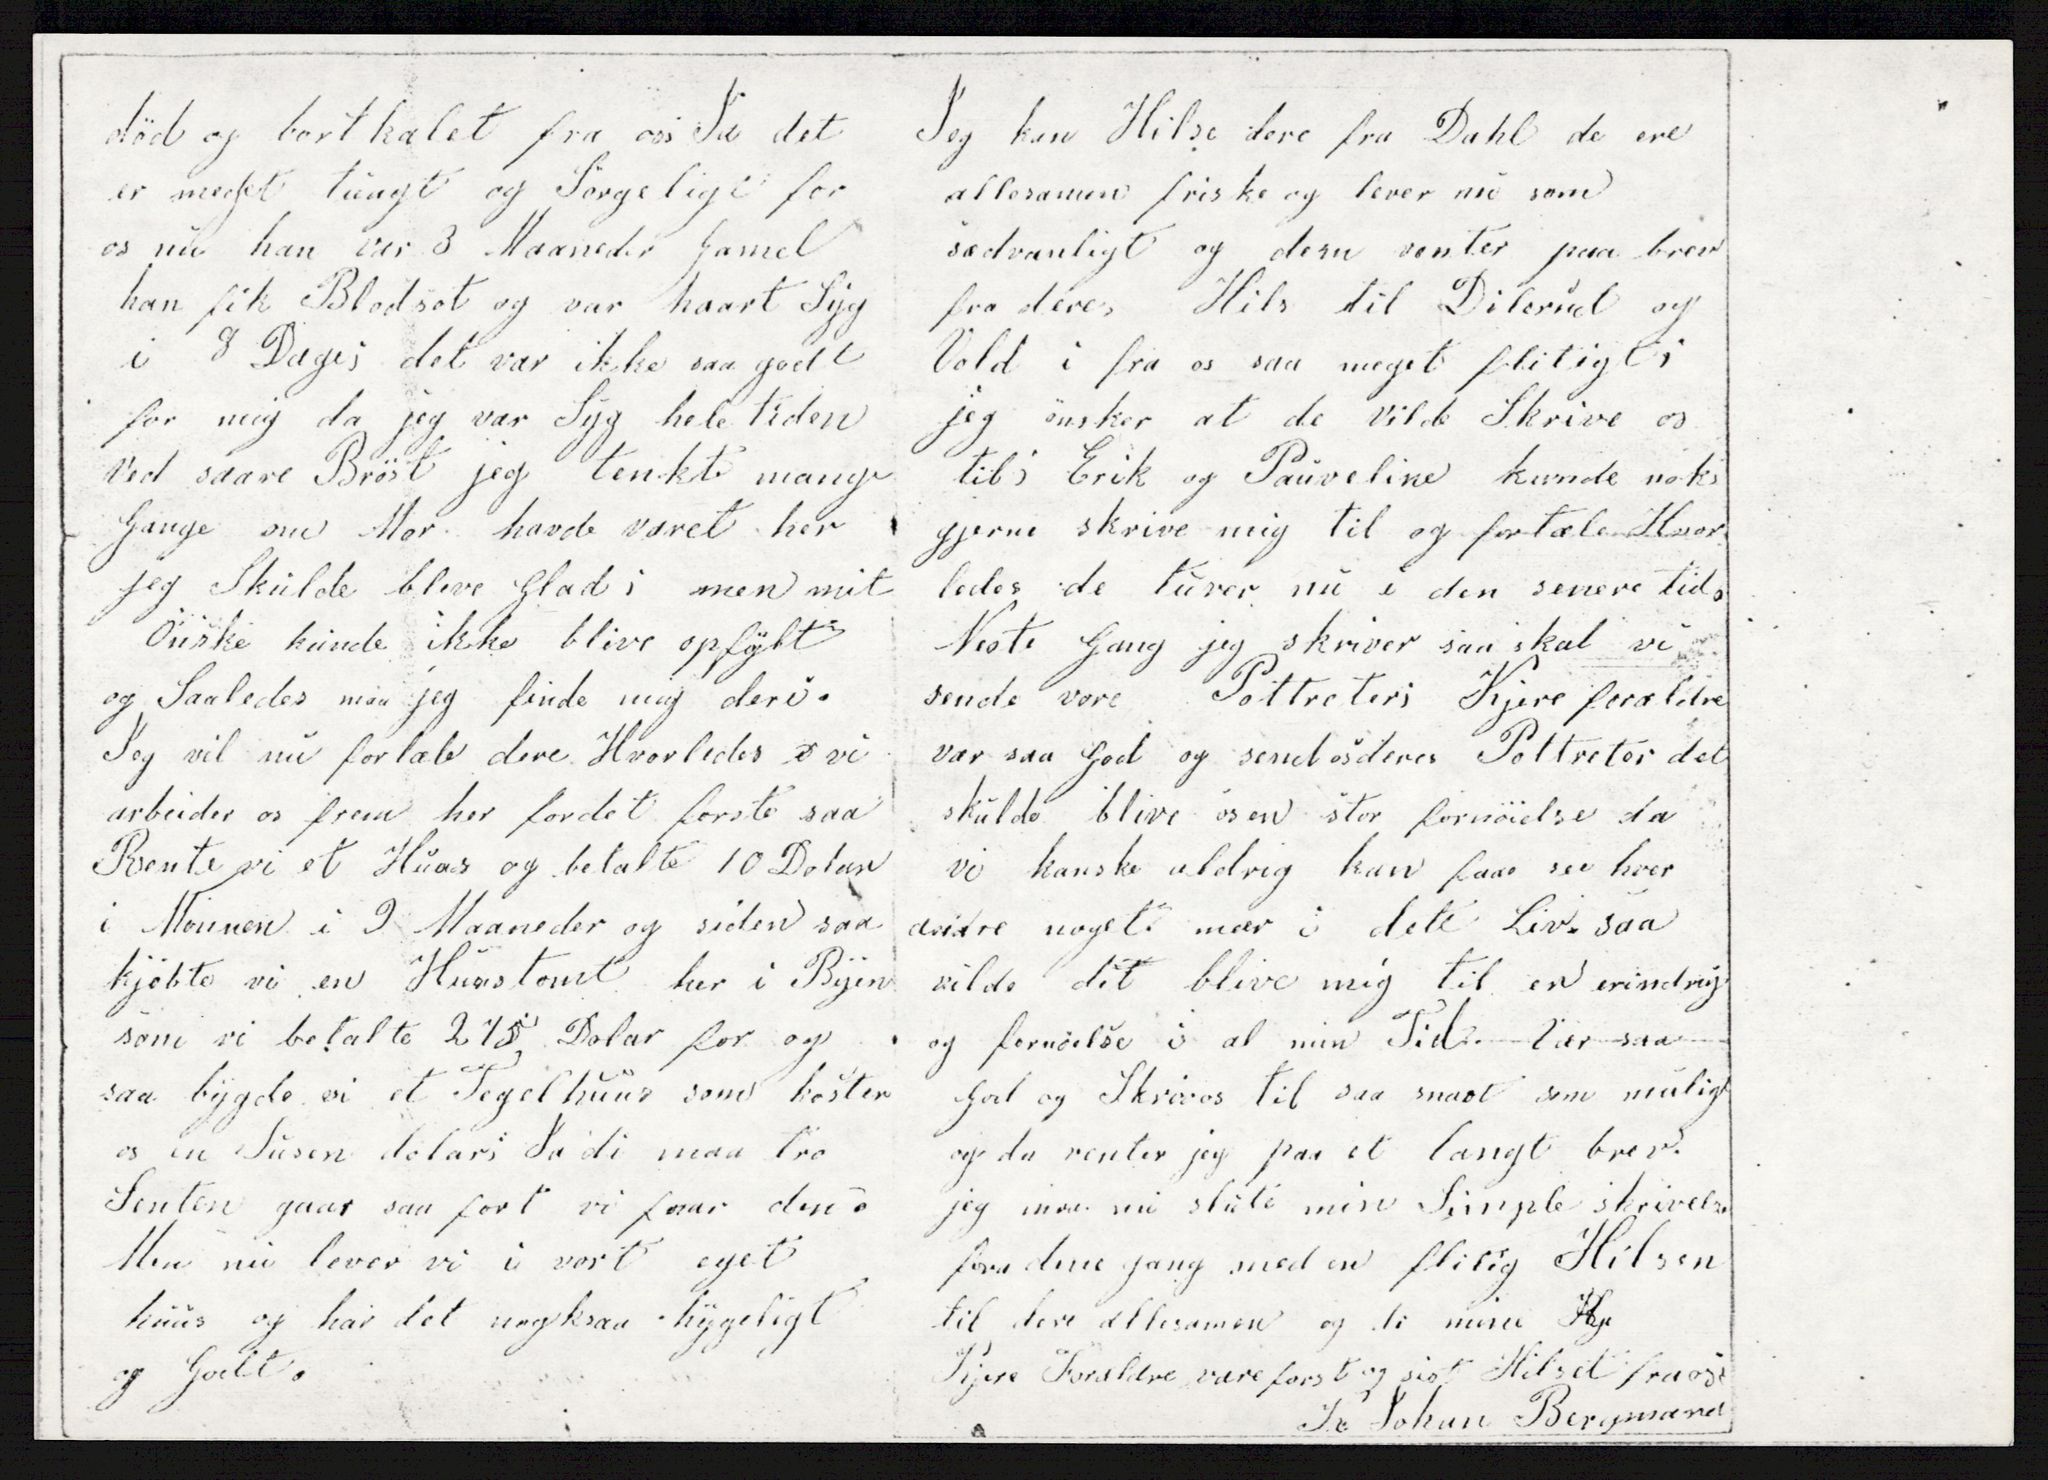 död og bortkalet fra oss Ja det
er meget tungt og Sörgeligt for
os nu han var 3 Maaneder Gamel
han fik Blodsot og var haart Syg
i 8 Dage; det var ikke saa godt
for mig da jeg var Syg hele tiden
Ved saare Bröst jeg tenkte mange
Gange om Mor havde været her
jeg Skulde bleve Glad; men mit
Önske kunde ikke blive opfylt
og Saaledes maa jeg finde mig deri.
Jeg vil nu fortæle dere Hvorledes vi
arbeider os frem her fordet forste saa
Rente vi et Huus og betalte 10 Dolar
i Monnen i 9 Maaneder og siden saa
kjöbte vi en Huustomt her i Byen
som vi betalte 275 Dolar for og
saa bygde vi et Tegelhuus som koster
os en Tusen dolar; Ja di maa tro
Senten gaar saa fort vi faar den.
Men nu lever vi i vort eget
huus og har det nogksaa hygeligt
og Godt.
Jeg kan Hilse dere fra Dahl de ere
allesamen friske og lever nu som
sædvanligt og dem venter paa brev
fra dere, Hils til Dilerud og
Vold i fra os saa meget flitigt;
jeg önsker at de vilde Skrive os
til; Erik og Pauveline kunde nok
gjerne skrive mig til og fortæle Hvor
ledes de turer nu i den senere tid.
Neste Gang jeg skriver saa skal vi
sende vore Pottreter; Kjere forældre
vær saa God og send os deres Pottreter det
skulde blive os en stor fornöielse da
vi kanske aldrig kan faae see hver
andre noget mer i dete Liv. saa
vilde dit blive mig til en erindrig
og fornöielse i al min Tid. Vær saa
God og Skriv os til saa snaot som muligt
og da venter jeg paa et langt brev.
jeg maa nu slute min Simple skrivelse
fora dene gang med en flitig Hilsen
til dere allesamen og di mine Kje
Kjere Foraldre være forst og sist Hilset fra os;
Johan Bergmand